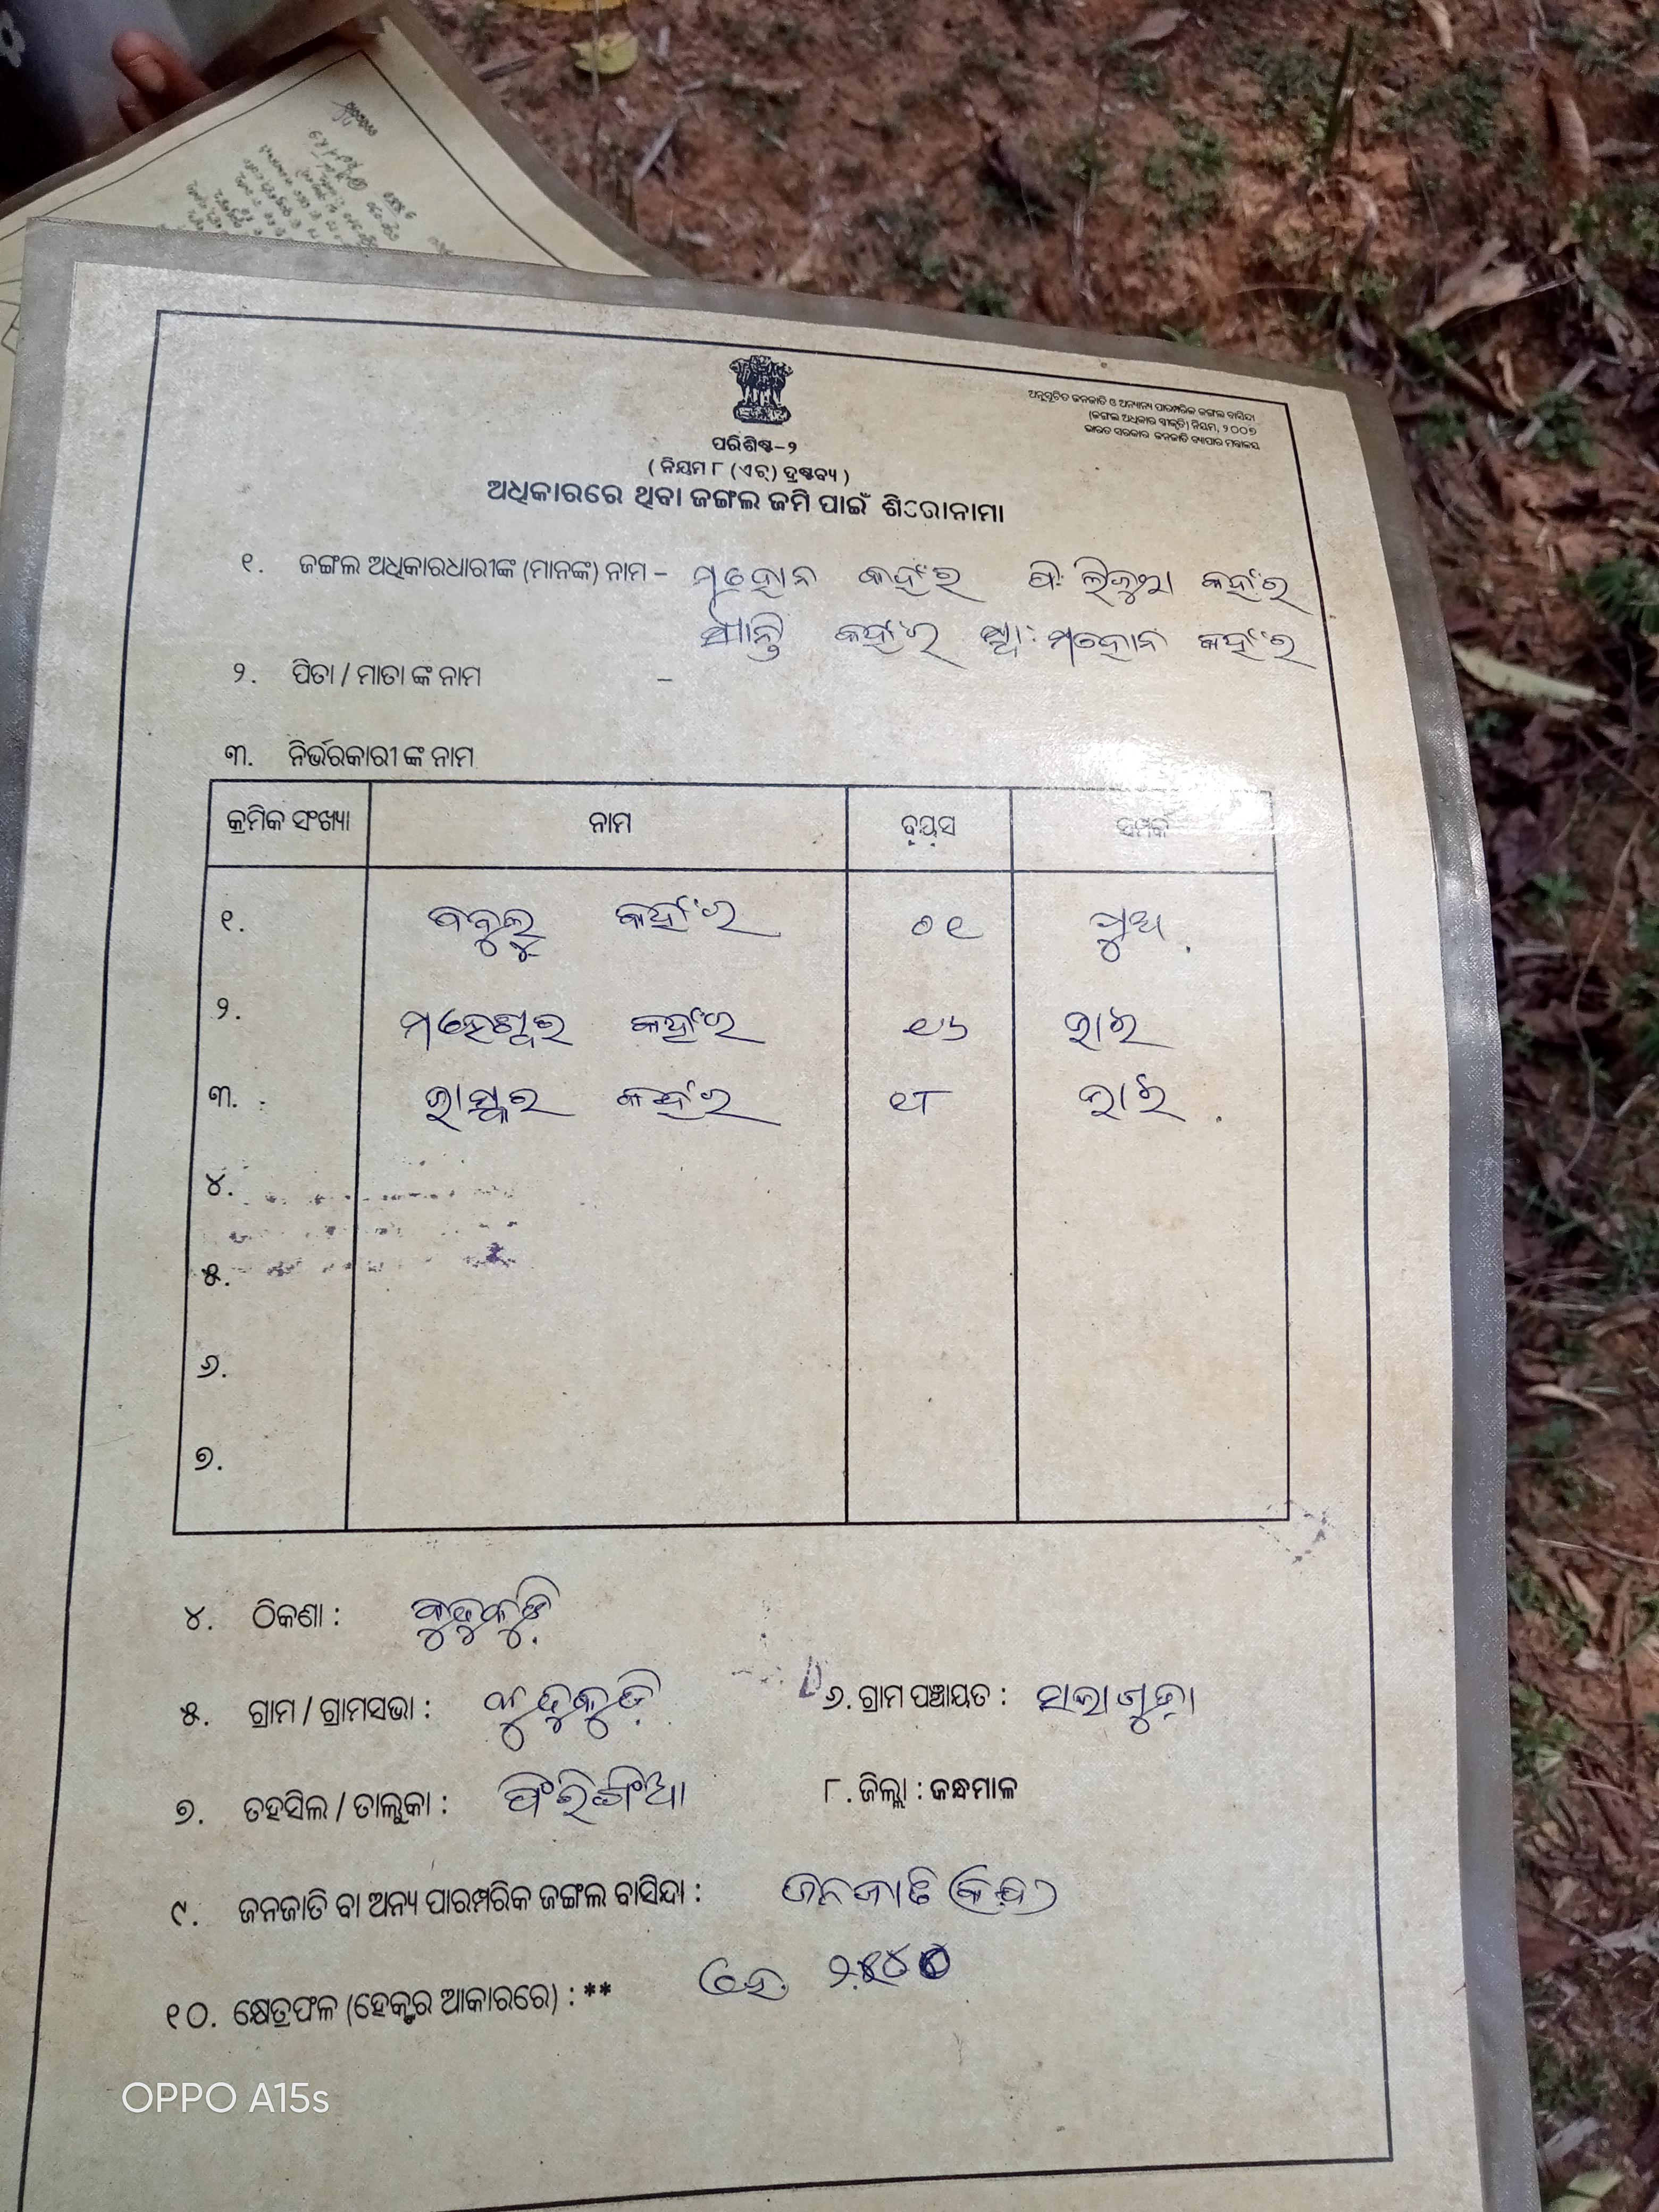 ଅନୁସୂଚିତ ଜନଜାତି ଓ ଅନ୍ୟାନ୍ୟ ପାରମ୍ପରିକ ଜଙ୍ଗଲ ବାସିନ୍ଦା
(ଜଙ୍ଗଲ ଅଧିକାର ସ୍ୱୀକୃତି) ନିୟମ, ୨୦୦୭
ଭାରତ ସରକାର ଜନଜାତି ବ୍ୟାପାର ମନ୍ତ୍ରାଳୟ
ପରିଶିଷ୍ଟ-୨
( ନିୟମ ୮ (ଏଚ୍) ଦ୍ରଷ୍ଟବ୍ୟ )
ଅଧିକାରରେ ଥିବା ଜଙ୍ଗଲ ଜମି ପାଇଁ ଶିରୋନାମା
୧. ଜଙ୍ଗଲ ଅଧିକାରଧାରୀଙ୍କ (ମାନଙ୍କ) ନାମ – ମହୋନ କହଁର ପି: କହଁର
ଶାନ୍ତି କହଁର ସ୍ୱା: ମହୋନ କହଁର
୨. ପିତା / ମାତା ଙ୍କ ନାମ –
୩. ନିର୍ଭରକାରୀ ଙ୍କ ନାମ
କ୍ରମିକ ସଂଖ୍ୟା ନାମ ବୟସ ସମ୍ପର୍କ
୧. ବବୁଲୁ କହଁର ୦୧ ପୁଅ
୨. ମହେଶ୍ୱର କହଁର ୧୬ ଭାଇ
୩. ଭାସ୍କର କହଁର ୧୮ ଭାଇ
୪.
୫.
୬.
୭.
୪. ଠିକଣା :
୫. ଗ୍ରାମ / ଗ୍ରାମସଭା : ୬. ଗ୍ରାମ ପଞ୍ଚାୟତ :
୭. ତହସିଲ / ତାଲୁକା : ଫିରିଙ୍ଗିଆ ୮. ଜିଲ୍ଲା : କନ୍ଧମାଳ
୯. ଜନଜାତି ବା ଅନ୍ୟ ପାରମ୍ପରିକ ଜଙ୍ଗଲ ବାସିନ୍ଦା : ଜନଜାତି (କନ୍ଧ)
୧୦. କ୍ଷେତ୍ରଫଳ (ହେକ୍ଟର ଆକାରରେ) : ** ହେ.
OPPO A15s